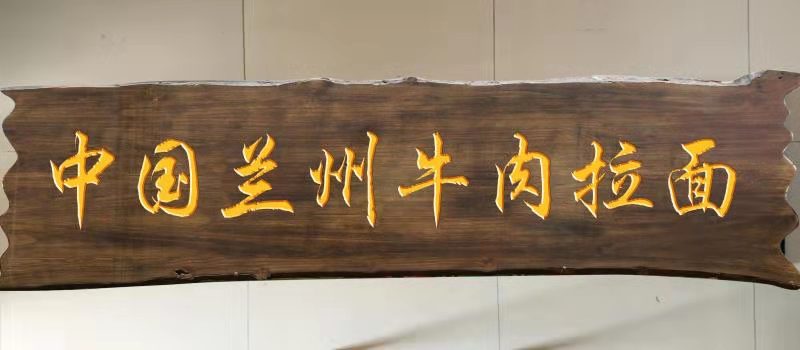 中国兰州牛肉拉面